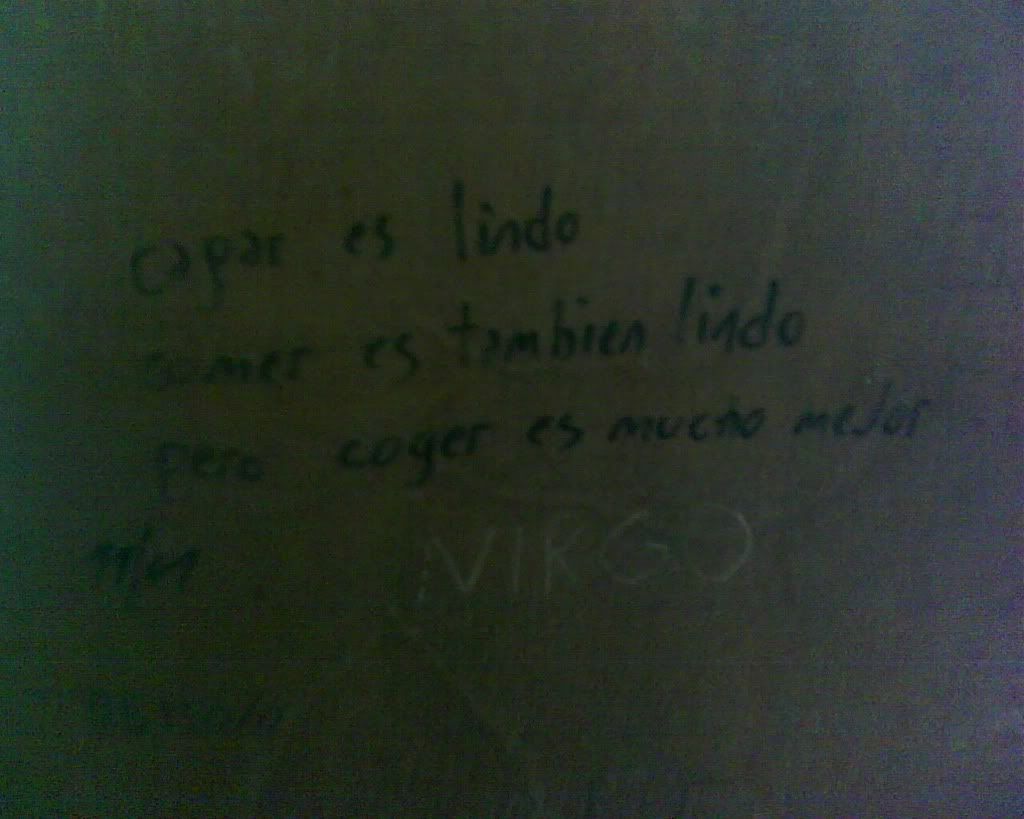 capar es lindo
comer es tambien lindo
pero coger es mucho mejor
VIRGO